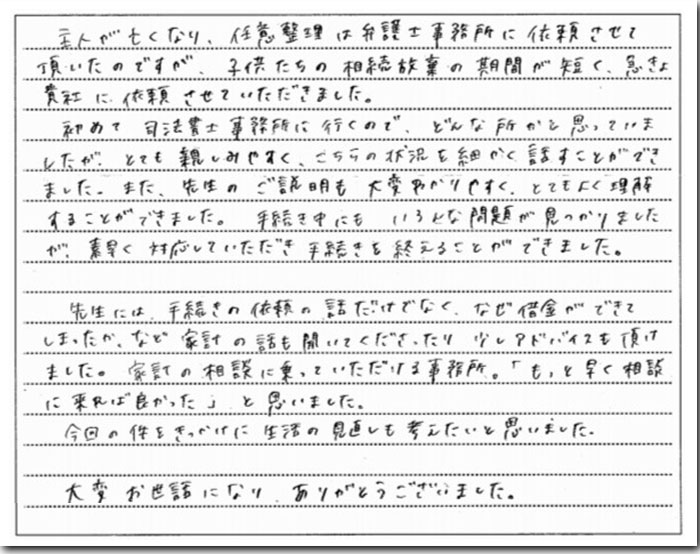 主人が亡くなり、任意整理は弁護士事務所に依頼させて
頂いたのですが、子供たちの相続放棄の期間が短く、急きょ
貴社に依頼させていただきました。
初めて司法書士事務所に行くので、どんな所かと思っていま
したが、とても親しみやすく、こちらの状況を細かく話すことができ
ました。また、先生のご説明も大変わかりやすく、とてもよく理解
することができました。手続き中にもいろんな問題が見つかりました
が、素早く対応していただき手続きを終えることができました。
先生には、手続きの依頼の話だけでなく、なぜ借金ができて
しまったか、など家計の話も聞いてくださったり少しアドバイスも頂け
ました。家計の相談に乗っていただける事務所。「もっと早く相談
に来れば良かった」と思いました。
今回の件をきっかけに生活の見直しも考えたいと思いました。
大変お世話になり、ありがとうございました。